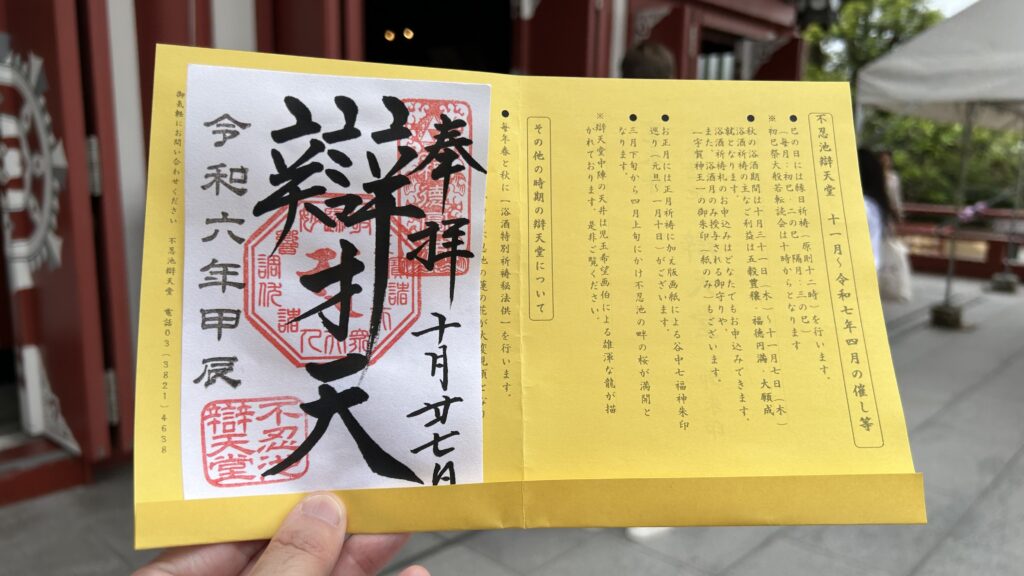 不忍池辯天堂 十一月～令和七年四月の催し等
●巳の日には縁日祈祷(原則十二時)を行います。
(毎月:初巳・二の巳 隔月:三の巳)
※初巳祭大般若転読会は十時からとなります
●秋の浴酒期間は十月三十一日(木)～十一月七日(木)
浴酒祈祷の主なご利益は五穀豊穣、福徳円満、大願成
就となります。
浴酒祈祷札のお申込みはどなたでもお申込みできます。
また、浴酒月のみ授与される御守りや
「宇賀神王」の御朱印(紙のみ)もございます。
●お正月には正月祈祷に加え版画紙による谷中七福神朱印
巡り(元旦～一月十日)がございます。
●三月下旬から四月上旬にかけ不忍池の畔の桜が満開と
なります。
※辯天堂中陣の天井は児玉希望画伯による雄渾な龍が描
かれております。是非ご覧ください。
その他の時期の辯天堂について
●毎年春と秋に「浴酒特別祈祷秘法供」を行います。
の蓮の花が大変見頃
奉拝
十月廿七日
辯才天
令和六年甲辰
不忍池
辯天堂
御気軽にお問い合わせください 不忍池辯天堂 電話03(3821)4638